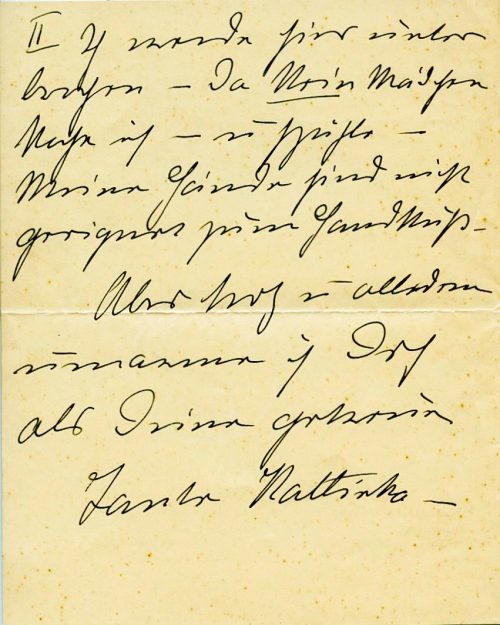 II Ich werde hier unter
brochen – Da Kein Mädchen
Koche ich – u spühle –
Meine Hände sind nicht
geeignet zum Handkuß –
Aber trotz u alledem
umarme ich Dich
als Deine getreue
Tante Kattinka –